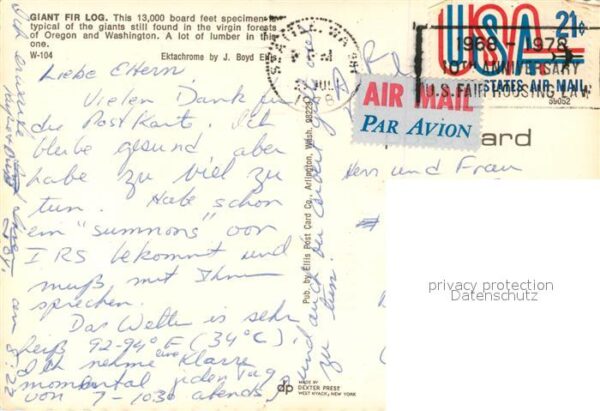 GIANT FIR LOG. This 13,000 board feet specimen
typical of the giants still found in the virgin forests
of Oregon and Washington. A lot of lumber in this
one.
W-104
Ektachrome by J. Boyd
Liebe Eltern,
Vielen Dank für
die Postkarte. Ich
bleibe gesund, aber
habe zu viel zu
tun. Habe schon
ein "summons" von
IRS bekommt und
muß mit Ihnen
sprechen.
Das Wetter is sehr
heiß 92-94° F (34°C).
Ich nehme eine Klasse
momental jeden Tag
von 7-1030 abends
und auch
zu tun
Pub. by Ellis Post Card Co., Arlington, Wash. 98223
dp
MADE BY
DEXTER PRESS
WEST NYACK, NEW YORK
SEATTLE, WA
PM
1968-1978
10TH ANNIVERSARY
U.S. FAIR HOUSING LAW
USA 21¢
STATES AIR MAIL
59052
AIR MAIL
PAR AVION
ard
Herr und Frau
privacy protection
Datenschutz